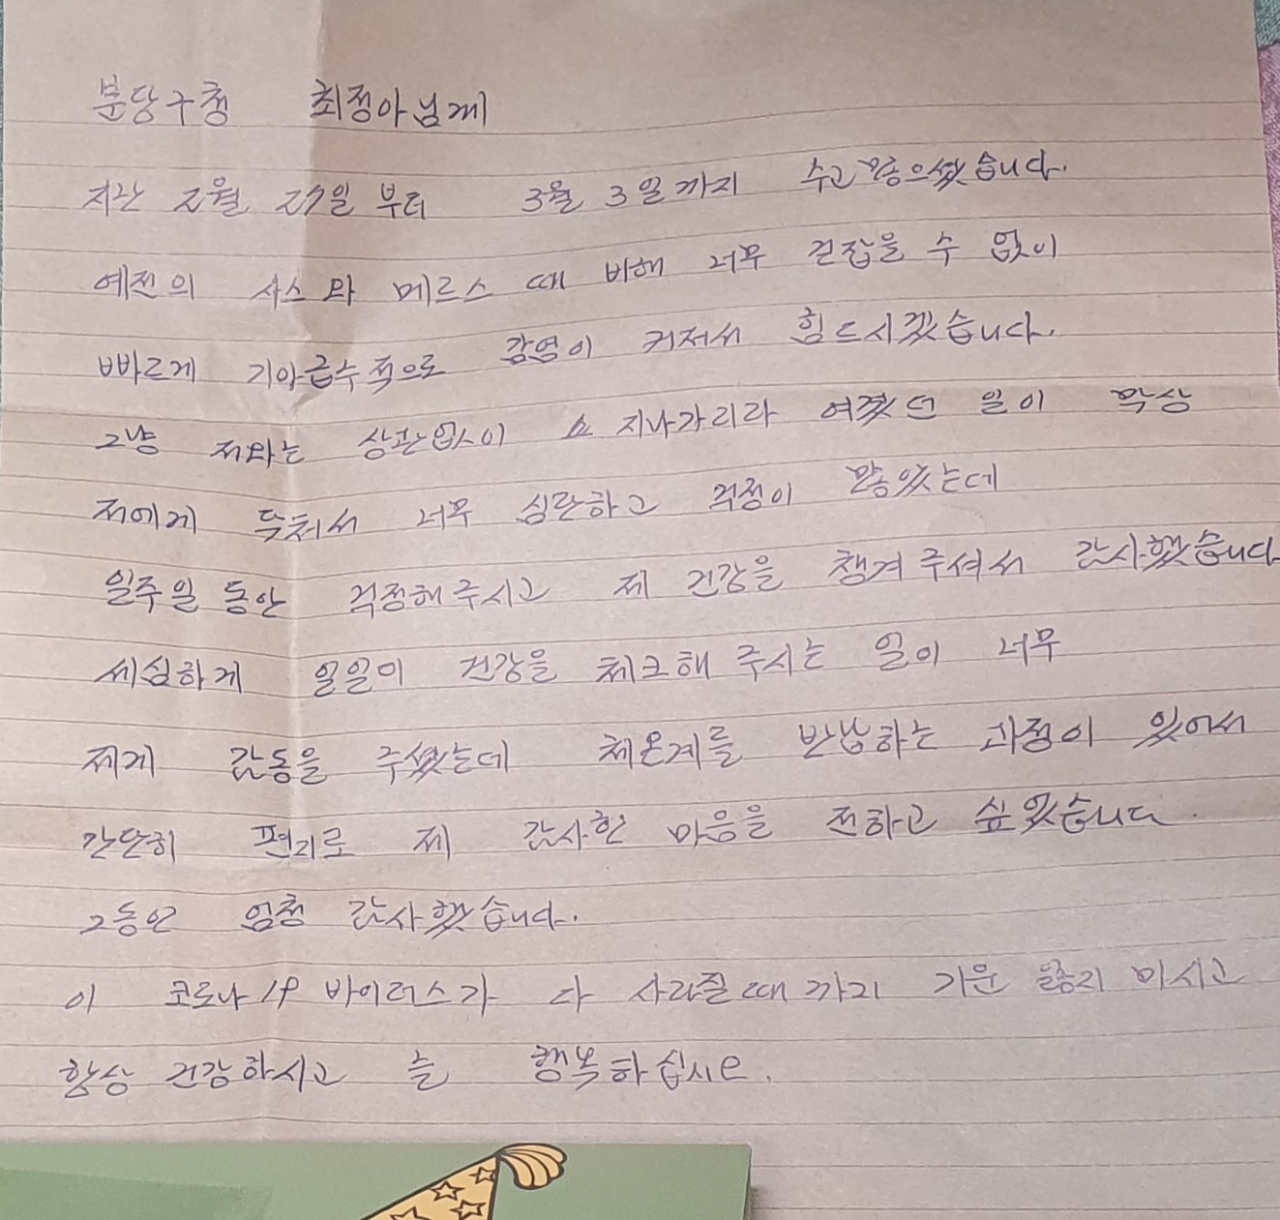 분당구청 최정아님께
지난 2월 27일 부터 3월 3일까지 수고많으셨습니다.
예전의 사스와 메르스 때 비해 너무 걷잡을 수 없이
빠르게 기아급수적으로 감염이 커져서 힘드시겠습니다.
그냥 저와는 상관없이 쇼 지나가리라 여겼던 일이 막상
저에게 닥쳐서 너무 심란하고 걱정이 많았는데
일주일 동안 걱정해주시고 제 건강을 챙겨주셔서 감사했습니다
세심하게 일일이 건강을 체크해 주시는 일이 너무
제게 감동을 주셨는데 체온계를 반납하는 과정이 있어서
간단히 편지로 제 감사한 마음을 전하고 싶었습니다.
그동안 엄청 감사했습니다.
이 코로나19 바이러스가 다 사라질때까지 기운 잃지 마시고
항상 건강하시고 늘 행복하십시요.